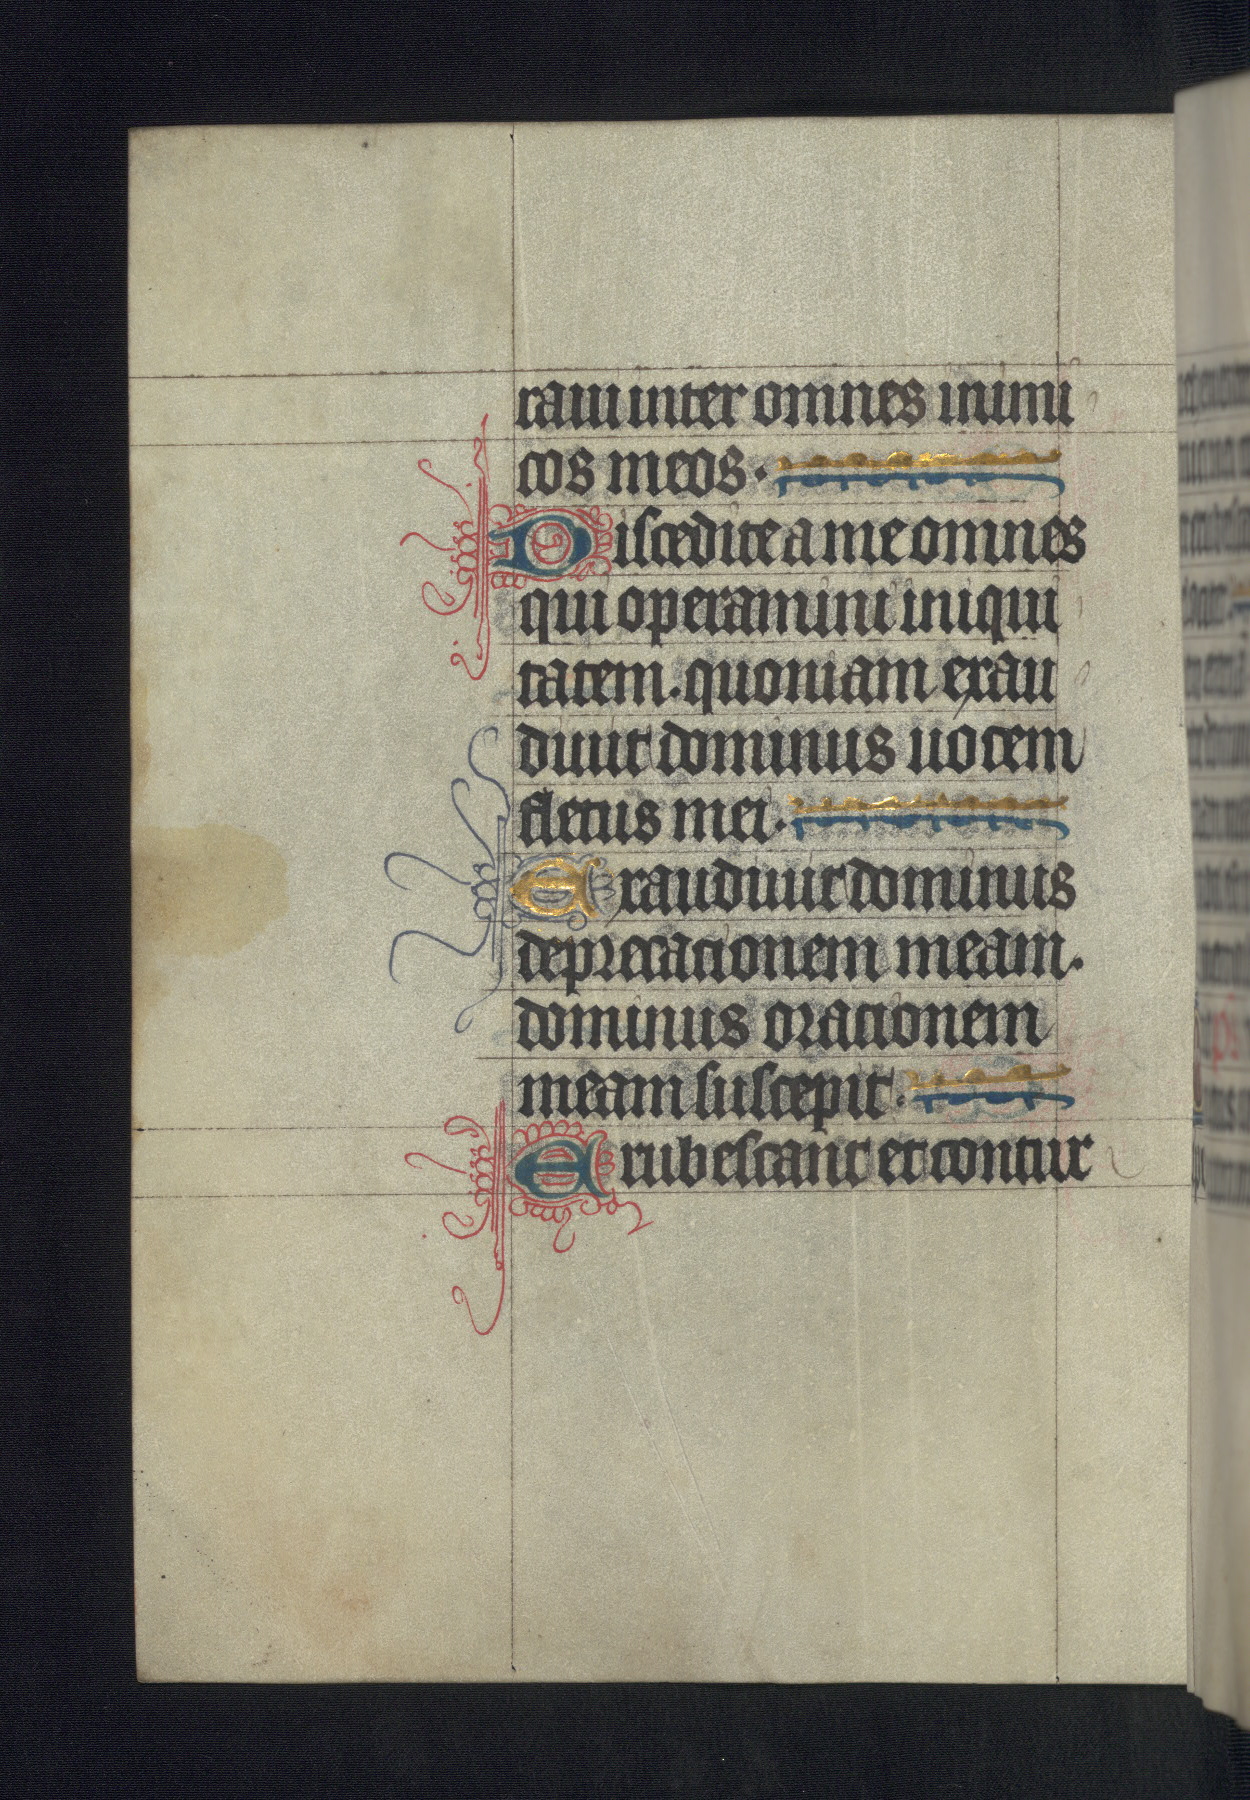 raui inter omnes inimi
cos meos.
Discedite a me omnes
qui operamini iniqui
tatem. quoniam exau
diuit dominus uocem
fletus mei.
Exaudiuit dominus
deprecationem meam.
dominus orationem
meam suscepit.
Erubescant et contur